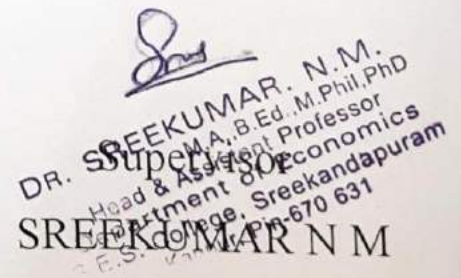 DR. SREEKUMAR. N.M.
M.A,.B.Ed.,M.Phil,PhD
Head & Assistant Professor
Department of Economics
S.E.S. College, Sreekandapuram
Kannur, Pin-670 631
Supervisor
SREEKUMAR N M